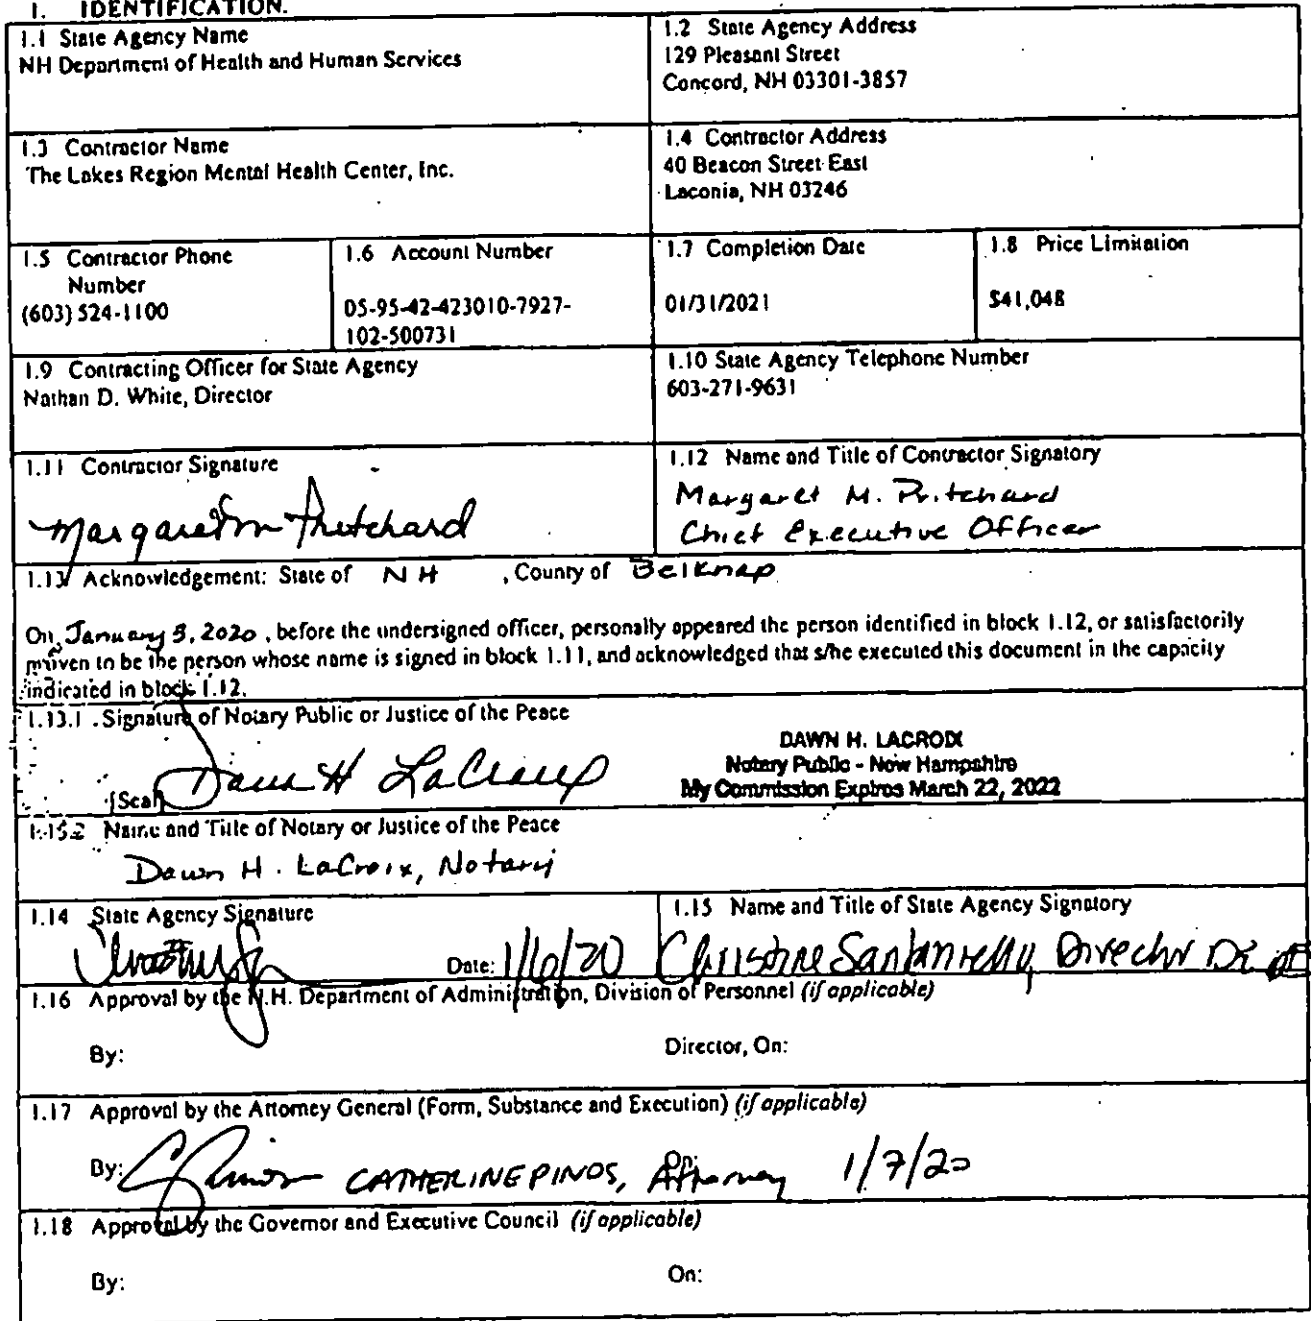 1. IDENTIFICATION.
1.1 State Agency Name
NH Department of Health and Human Services
1.2 State Agency Address
129 Pleasant Street
Concord, NH 03301-3857
1.3 Contractor Name
The Lakes Region Mental Health Center, Inc.
1.4 Contractor Address
40 Beacon Street East
Laconia, NH 03246
1.5 Contractor Phone
Number
(603) 524-1100
1.6 Account Number
05-95-42-423010-7927-
102-500731
1.7 Completion Date
01/31/2021
1.8 Price Limitation
$41,048
1.9 Contracting Officer for State Agency
Nathan D. White, Director
1.10 State Agency Telephone Number
603-271-9631
1.11 Contractor Signature
Margaret M Pritchard
1.12 Name and Title of Contractor Signatory
Margaret M. Pritchard
Chief Executive Officer
1.13 Acknowledgement: State of NH , County of Belknap
On January 3, 2020, before the undersigned officer, personally appeared the person identified in block 1.12, or satisfactorily
proven to be the person whose name is signed in block 1.11, and acknowledged that s/he executed this document in the capacity
indicated in block 1.12.
1.13.1 Signature of Notary Public or Justice of the Peace
Dawn H LaCroix
[Seal]
DAWN H. LACROIX
Notary Public - New Hampshire
My Commission Expires March 22, 2022
1.13.2 Name and Title of Notary or Justice of the Peace
Dawn H. LaCroix, Notary
1.14 State Agency Signature
Date: 1/6/20
1.15 Name and Title of State Agency Signatory
Christine Santaniello, Director
1.16 Approval by the N.H. Department of Administration, Division of Personnel (if applicable)
By:
Director, On:
1.17 Approval by the Attorney General (Form, Substance and Execution) (if applicable)
By: CATHERINE PINOS, Attorney On: 1/7/20
1.18 Approval by the Governor and Executive Council (if applicable)
By:
On: